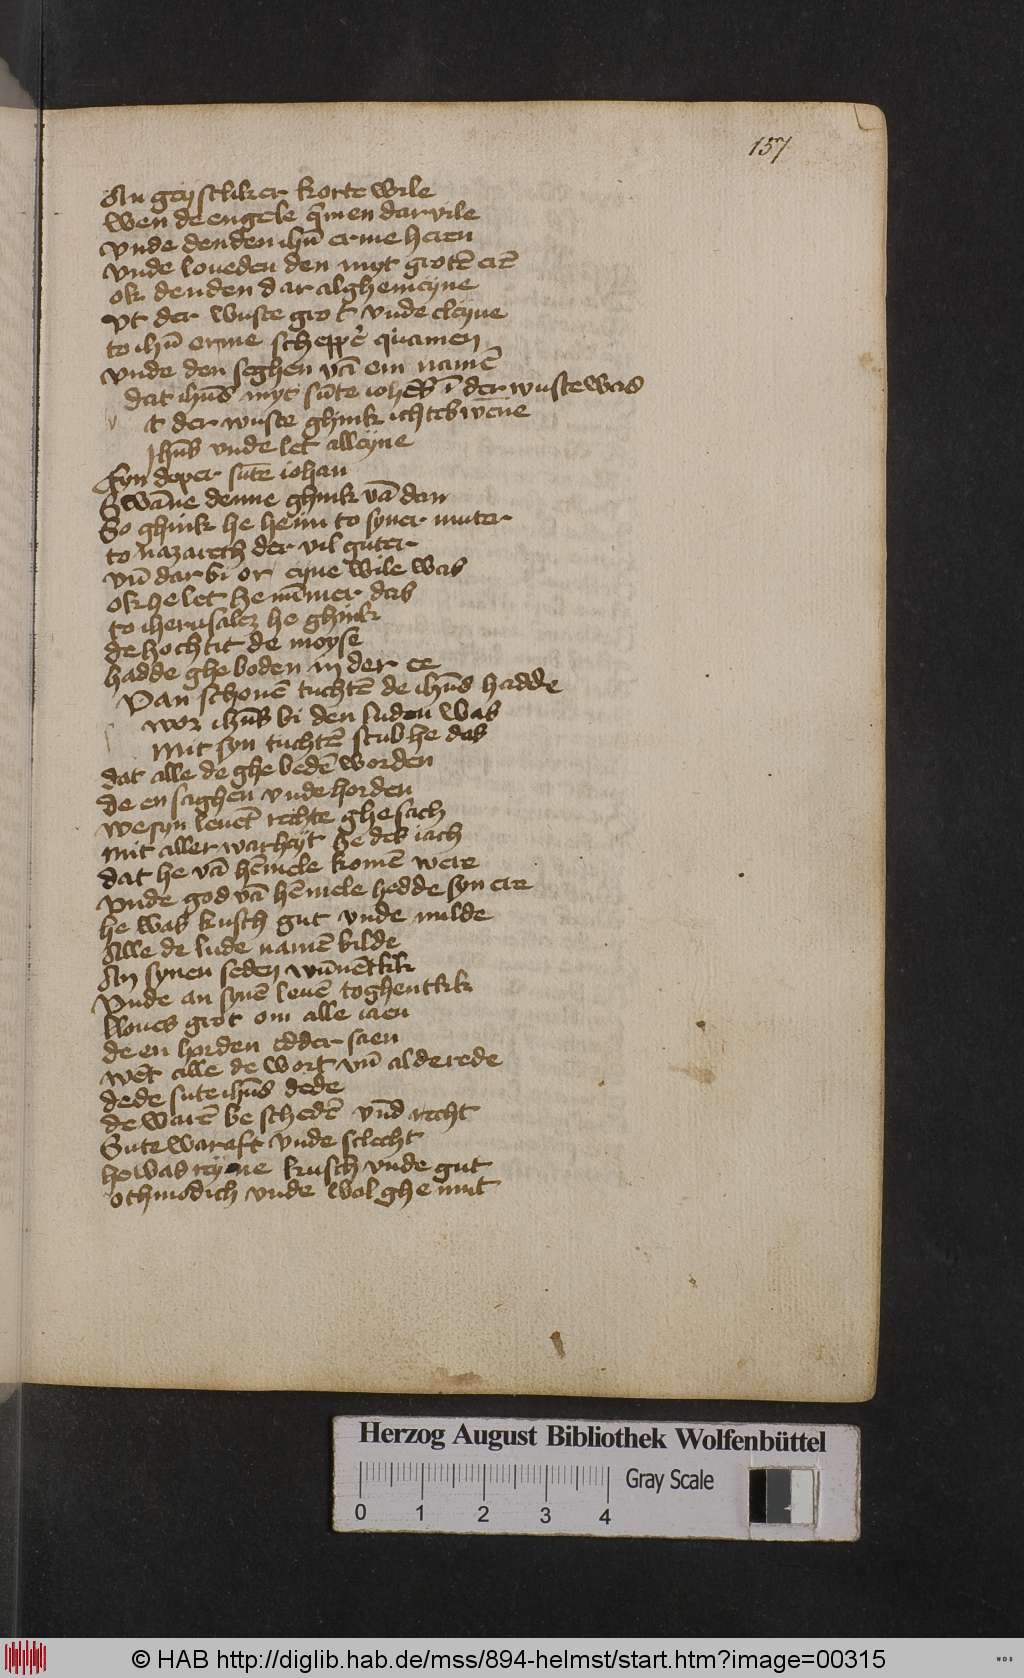 157
An geystliker korte wile
wen de engele q̄men dar vile
vnde denden ihū erme heren
vnde loueden den myt grotē erē
ok denden dar alghemeyne
vt der wuste grot vnde cleyne
to ihū erme scheppe᷑ quamen
vnde den seghen vā em namē
dat ihūs myt sūte ī der wuste was
t der wuste ghink ichteswene
Jhūs vnde let alleyne
Syn doper sūte iohan
Swāne denne ghink vā dan
So ghink he heim to syner muter
to nazareth der vil guter
vn̄ dar bi or eyne wile was
ok he let he nūmer das
to iherusalez he ghink
de hochtit de moyse
hadde ghe boden in der ee
Van schonē tuchtē de ihūs hadde
wor ihūs bi den luden was
Mit syn tuchtē schub he das
dat alle de ghe bedē worden
de en saghen vnde horden
we syn leuēt rechte ghesach
mit aller warheyt he dek iach
dat he vā hēmele komē were
vnde god vā hēmele hedde syn ere
he was kusch gut vnde milde
Alle de lude namē bilde
An synen seden
vnde an synē leuē
loues grot om alle iaen
de en horden edder saen
wēt alle de wort vn̄ al de rede
de de sute ihūs dede
de warē be schedē vn̄d recht
Sute waraft vnde slecht
he was reyne kusch vnde gut
othmodich vnde wol ghe mut
Herzog August Bibliothek Wolfenbüttel
Gray Scale
0 1 2 3 4
© HAB http://diglib.hab.de/mss/894-helmst/start.htm?image=00315